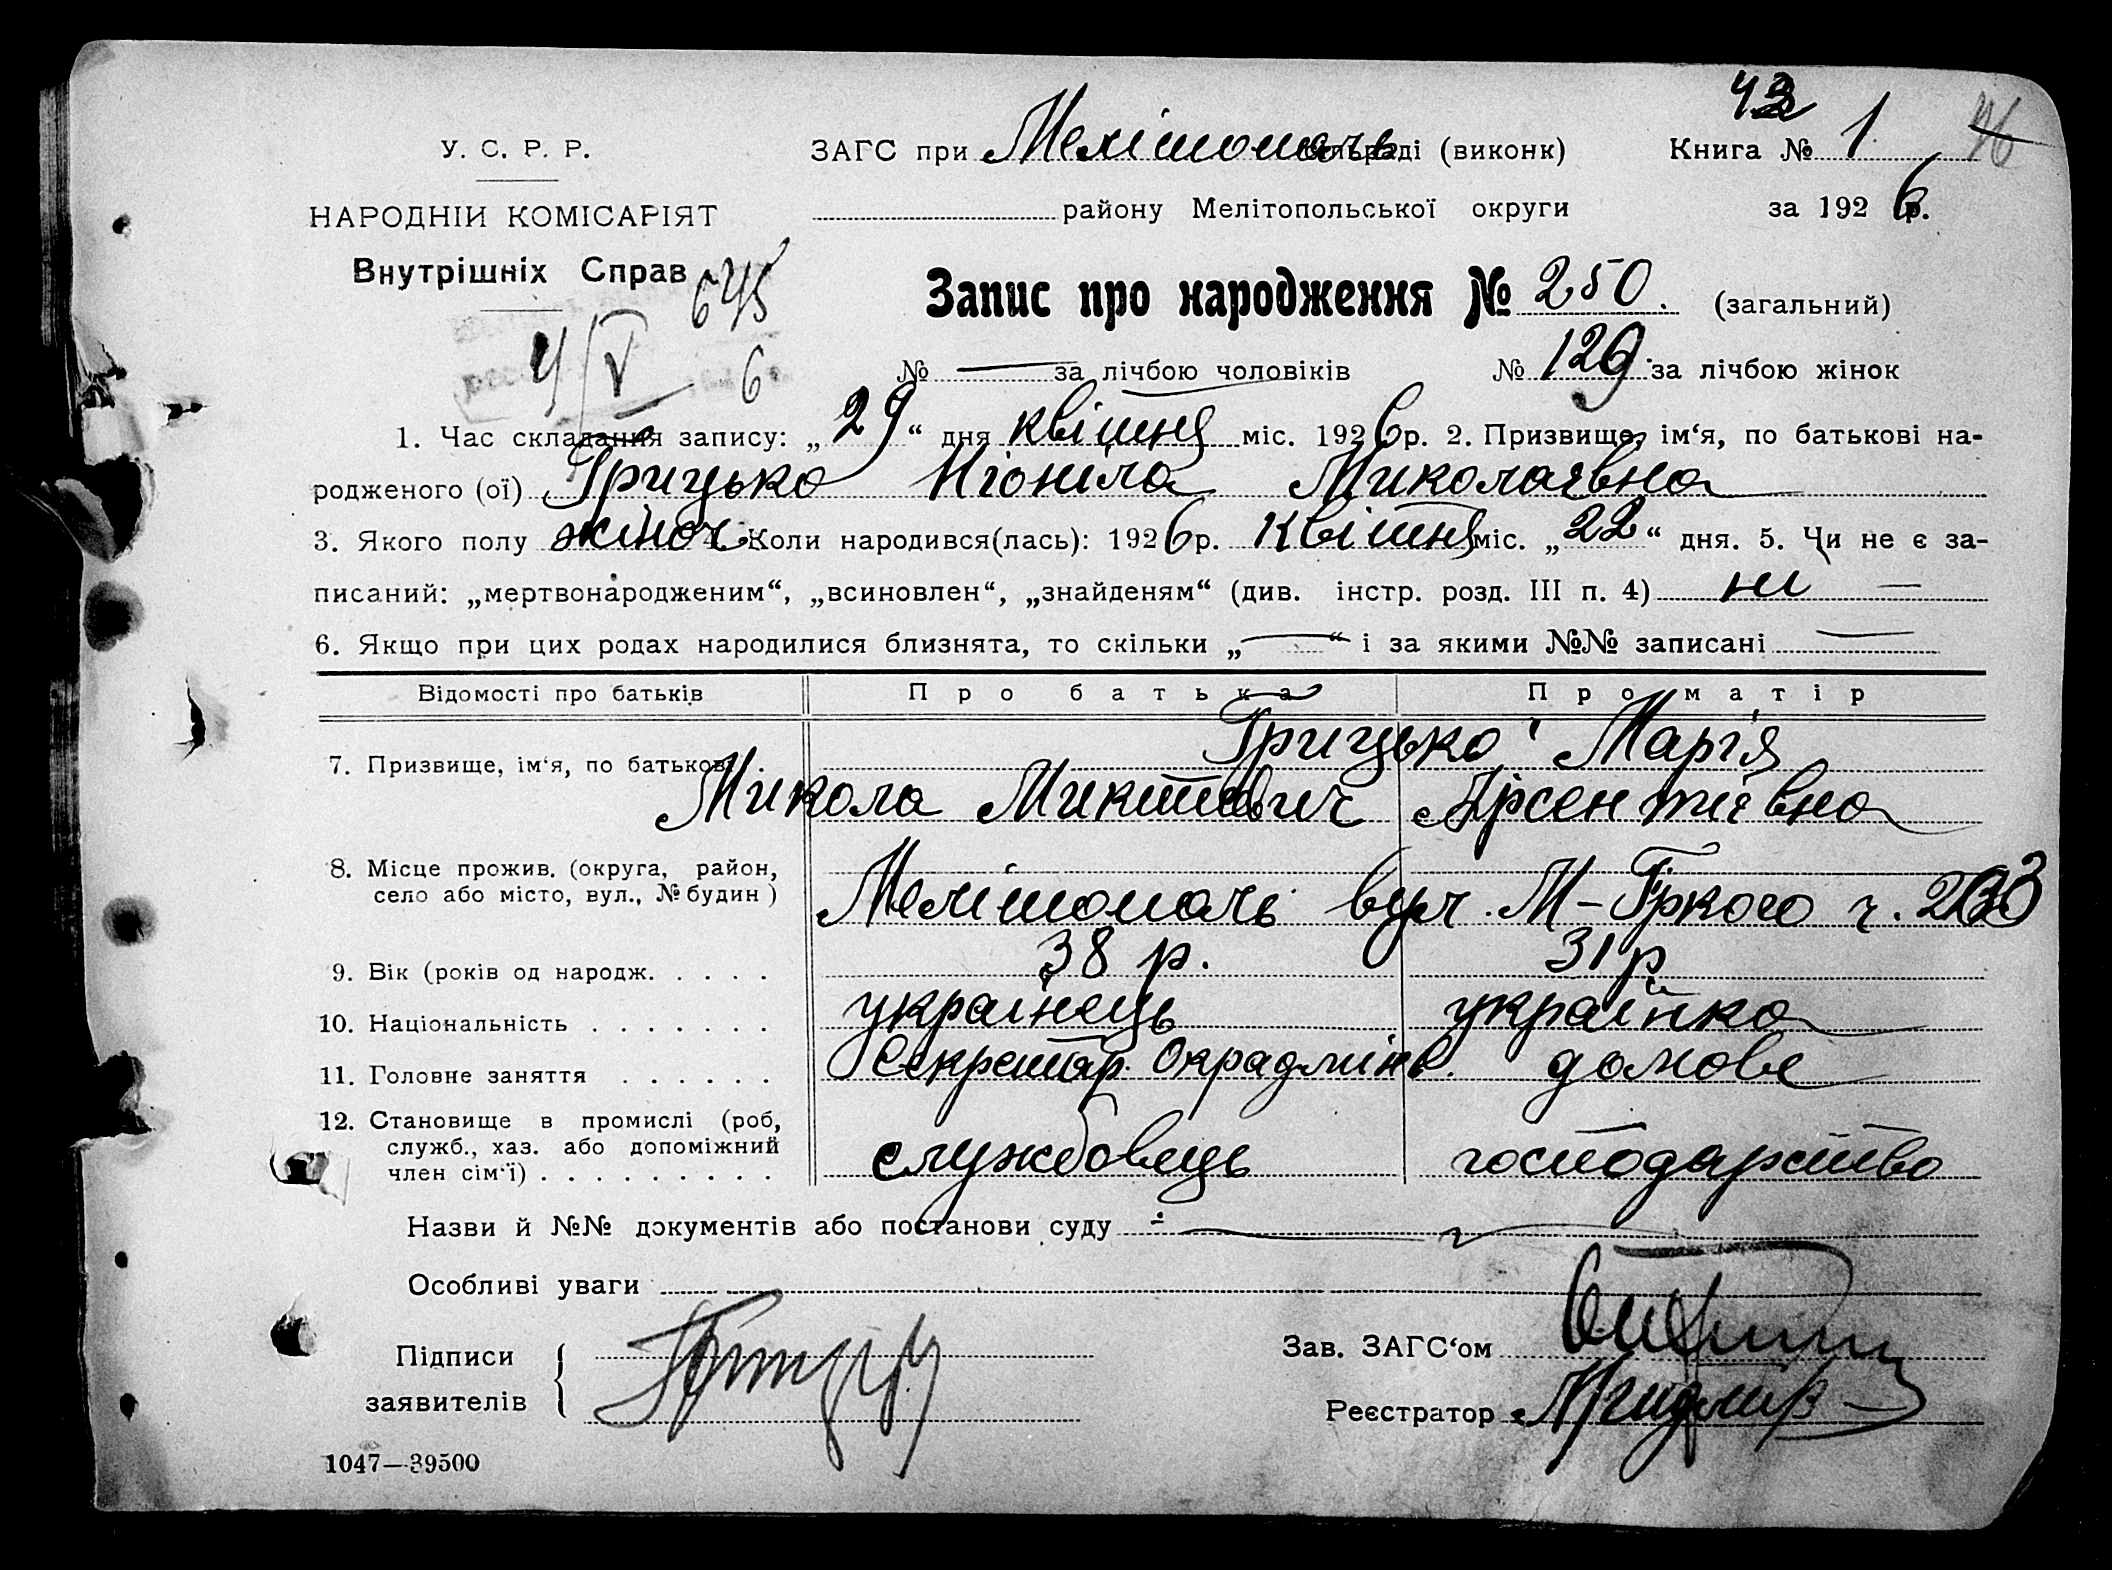 42 76
У. С. Р. Р. ЗАГС при Мелітополь сільраді (виконк) Книга № 1
НАРОДНІЙ КОМІСАРІЯТ району Мелітопольської округи за 1926 р.
Внутрішніх Справ 645
Запис про народження № 250. (загальний)
4/V 6
№ — за лічбою чоловіків № 129 за лічбою жінок
1. Час складання запису: „29“ дня квітня міс. 1926 р. 2. Призвище, ім‘я, по батькові на-
родженого (ої) Грицько Ніоніла Миколаєвна
3. Якого полу жіноч. 4. Коли народився(лась): 1926 р. Квітня міс. „22“ дня. 5. Чи не є за-
писаний: „мертвонародженим“, „всиновлен“, „знайденям“ (див. інстр. розд. III п. 4) ні —
6. Якщо при цих родах народилися близнята, то скільки „—“ і за якими №№ записані —
Відомості про батьків Про батька Про матір
Грицько Марія
7. Призвище, ім‘я, по батькові .
Микола Микитович Арсентієвна
8. Місце прожив. (округа, район,
село або місто, вул., № будин )
Мелітополь вул. М-Гіркого ч.
9. Вік (років од народж. . . . . 38 р. 31 р
10. Національність . . . . . . . українець українка
11. Головне заняття . . . . . . Секретар. Окрадмінв. домове
12. Становище в промислі (роб,
служб., хаз. або допоміжний
член сім‘ї) . . . . . . . . . службовець господарство
Назви й №№ документів або постанови суду —
Особливі уваги
Підписи
заявителів
Зав. ЗАГС‘ом
Реєстратор
1047—39500